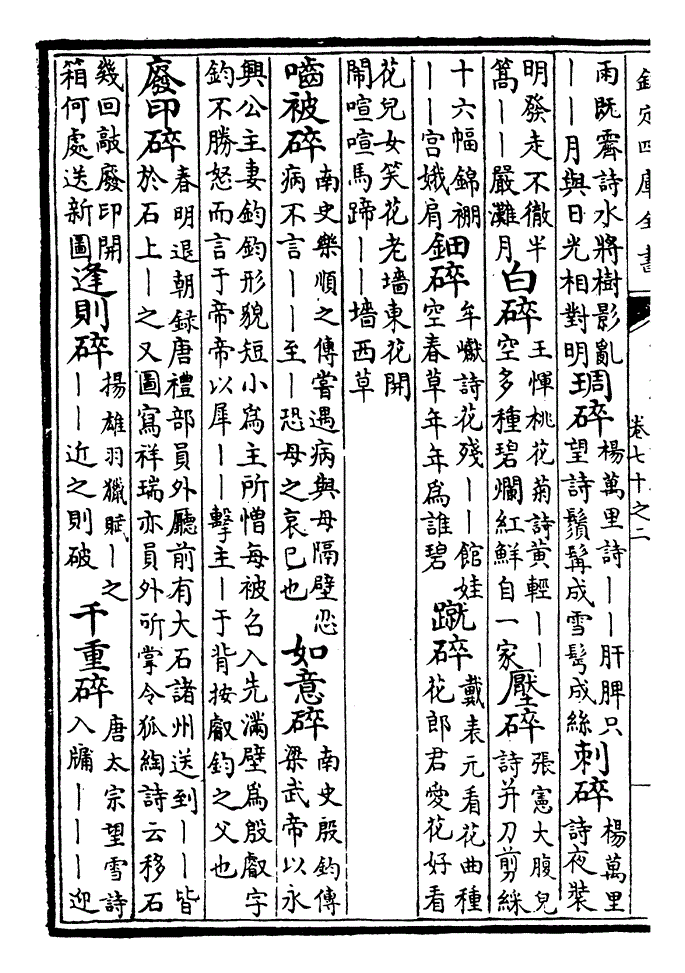 欽定四庫全書 卷七十之二
雨既霽詩水將樹影亂｜｜月與日光相對明琱碎楊萬里詩｜｜肝脾只望詩鬚髯成雪鬢成絲刺碎楊萬里詩夜裝
明發走不徹半篙｜｜嚴灘月白碎王惲桃花菊詩黄輕｜｜空多種碧爛紅鮮自一家壓碎張憲大腹兒詩并刀剪綵
十六幅錦裯｜｜宫娥肩鈿碎牟巘詩花殘｜｜館娃空春草年年為誰碧蹴碎戴表元看花曲種花郎君愛花好看
花兒女笑花老墻東花開閙喧喧馬蹄｜｜墻西草
嚙被碎南史樂順之傳嘗遇病與母隔壁忍病不言｜｜至｜恐母之哀已也如意碎南史殷鈞傳梁武帝以永
興公主妻鈞鈞形貌短小為主所憎每被召入先滿壁為殷叡字鈞不勝怒而言于帝帝以犀｜｜擊主｜于背按叡鈞之父也
廢印碎春明退朝録唐禮部員外廳前有大石諸州送到｜｜皆於石上｜之又圖寫祥瑞亦員外所掌令狐綯詩云移石
幾回敲廢印開箱何處送新圖逢則碎揚雄羽獵賦｜之｜｜近之則破千重碎唐太宗望雪詩入牖｜｜｜迎